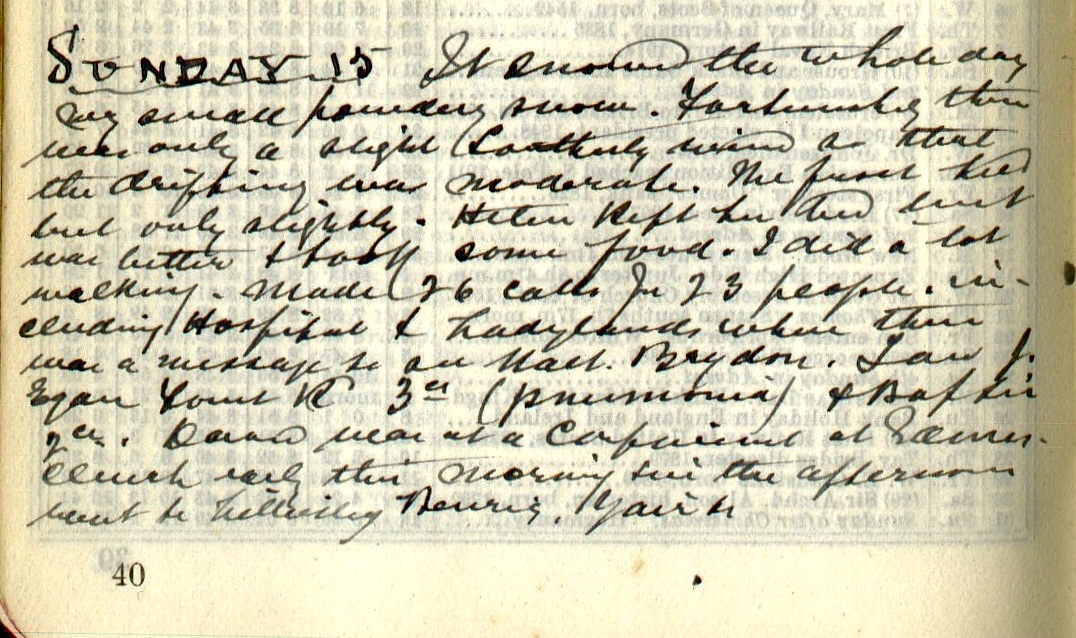 SUNDAY 15 It snowed the whole day
very small powdery snow. Fortunately there
was only a slight Southerly wind so that
the drifting was moderate. The frost held
but only slightly. Helen kept her bed but
was better & took some food. I did a lot
walking. Made 26 calls for 23 people. in-
cluding Hospital & Ladylands where there
was a message to see Matt. Brydon. Saw J.
Egan Court Rd 3 yrs (pneumonia) & Baptie
2 yrs. David was at a Confinement at
church early this morning & in the afternoon
went to
40